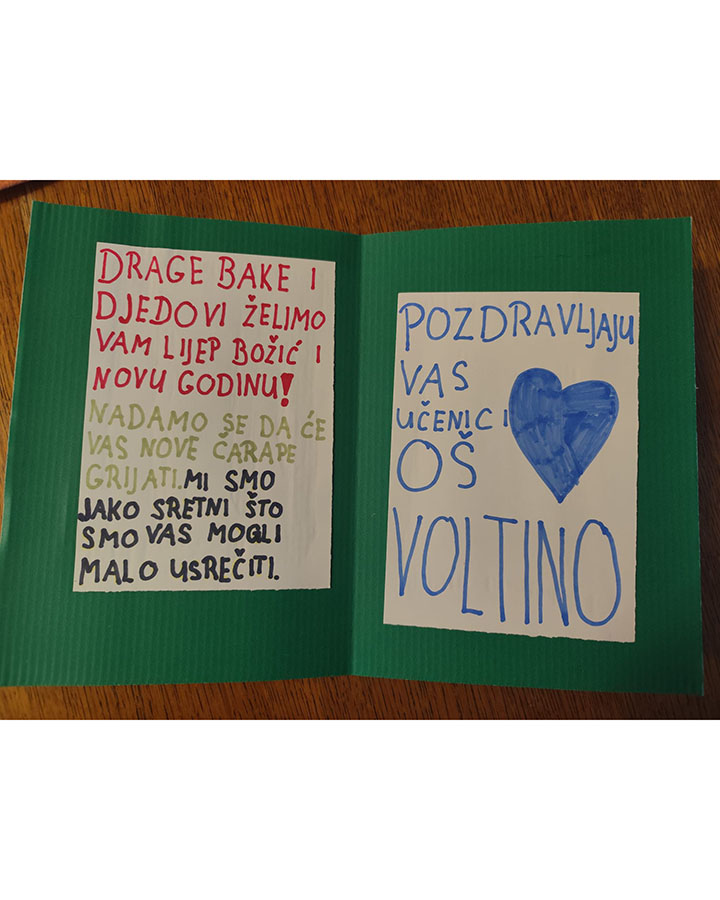 DRAGE BAKE I
DJEDOVI ŽELIMO
VAM LIJEP BOŽIĆ I
NOVU GODINU!
NADAMO SE DA ĆE
VAS NOVE ČARAPE
GRIJATI. MI SMO
JAKO SRETNI ŠTO
SMO VAS MOGLI
MALO USREČITI.
POZDRAVLJAJU
VAS
UČENICI
OŠ
VOLTINO